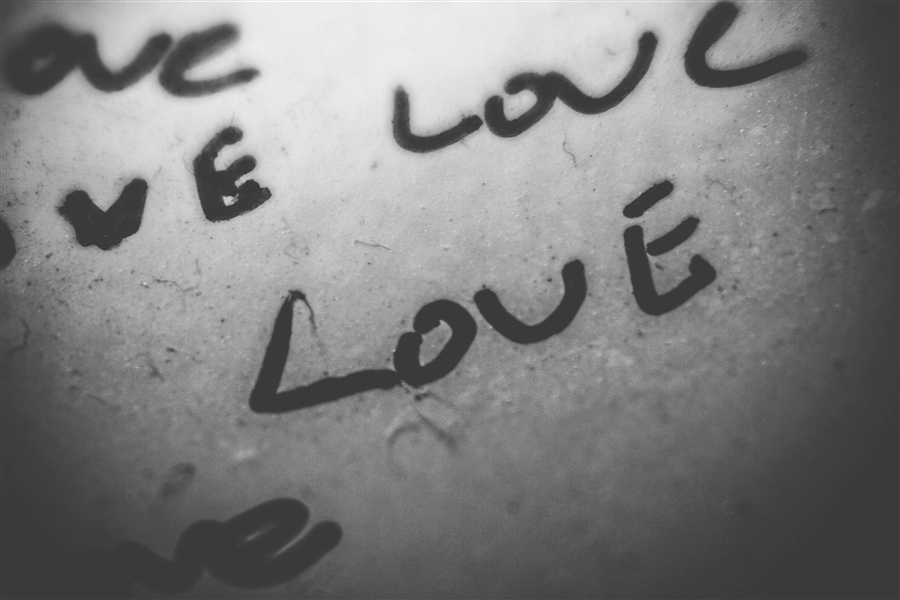 ove Love
OVE
LOVE
ove